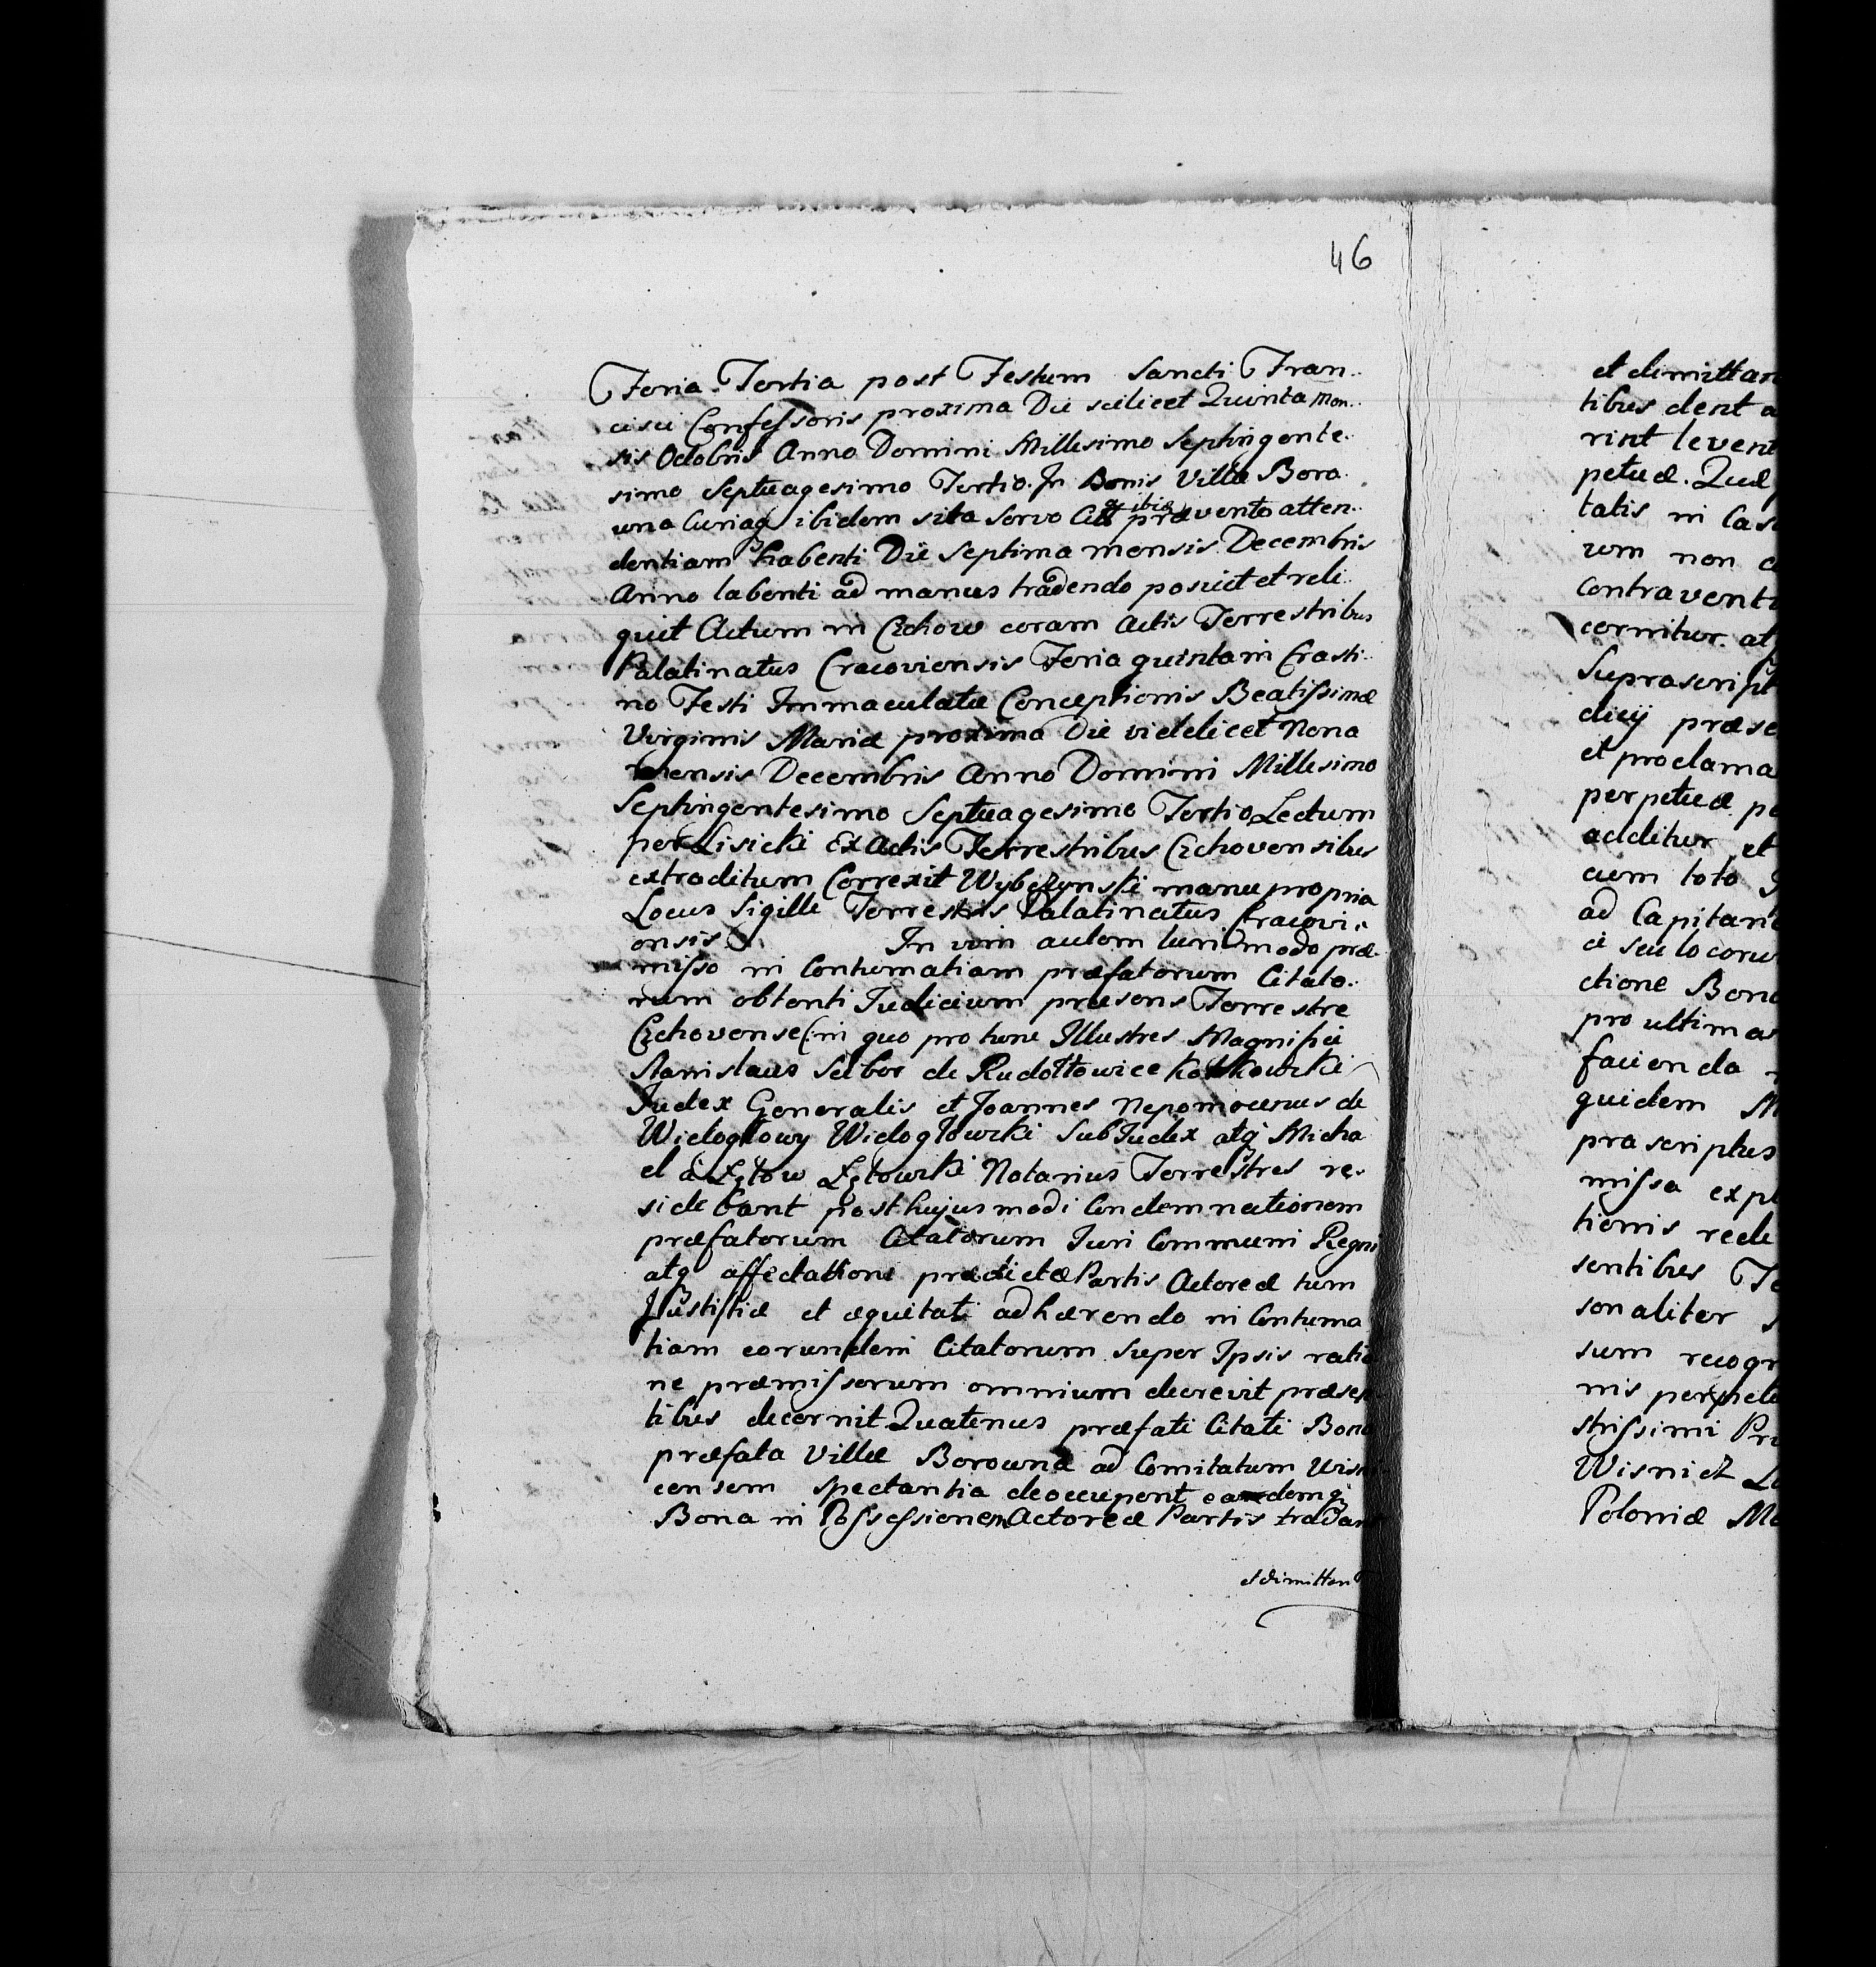 46
Feria Tertia post Festum Sancti Fran..
cisci Confessoris proxima Die scilicet Quinta Men..
sis Octobris Anno Domini Millesimo Septingente..
simo Septuagesimo Tertio. In Bonis Villæ Boro.
wna Curiaq ibidem sita servo prævento atten..
dentiam habenti Die Septima mensis Decembris
Anno labenti ad manus tradendo posuit et reli..
quit Actum in Czchow coram Actis Terrestribus
Palatinatus Cracoviensis Feria quinta in Crasti..
no Festi Immaculatæ Conceptionis Beatissimæ
Virginis Mariæ proxima Die videlicet Nona
mensis Decembris Anno Domini Millesimo
Septingentesimo Septuagesimo Tertio Lectum
per Lisicki Ex Actis Terrestribus Czchovensibus
extraditum Correxit Wybczynski manu propria
Locus Sigilli Terrestris Palatinatus Cracovi..
ensis. In vim autem lucri modo præ
misso in Contumatiam præfatorum Citato..
rum obtenti Judicium præsens Terrestre
Czchovense (in quo pro tunc Illustres Magnifici
Stanislaus Scibor de Rudołtowice Kotkowski
Judex Generalis et Joannes Nepomocenus de
Wielogłowy Wielogłowski SubJudex atq Micha
el a Łętow Łętowski Notarius Terrestres re..
sidebant post hujusmodi Condemnationem
præfatorum Citatorum Juri Communi Regni
atq affectationi prædictæ Partis Actoreæ tum
Justitiæ et æquitati adhærendo in Contuma
tiam eorundem Citatorum super Ipsis ratio
ne præmissorum omnium decrevit præsen
tibus decernit Quatenus præfati Citati Bona
præfata Villæ Borownæ ad Comitatum Wisni
censem spectantia deoccupent eademq
Bona in Possessionem Actoreæ Partis tradant
et dimittant
et dimittan
tibus dent a
rint levent
petuæ. Quæ
talis in Cas
um non c
contravent
cernitur. at
Suprascript
dicÿ præse
et proclama
perpetuæ pæ
additur et
cum toto
ad Capitan
ci seu locoru
ctione Bono
pro ultima
facienda
quidem M
prascriptus
missa expl
tionis rede
sentibus Te
sonaliter
sum recogn
nis perpetu
strissimi Pr
Wisnicz L
Poloniæ Ma